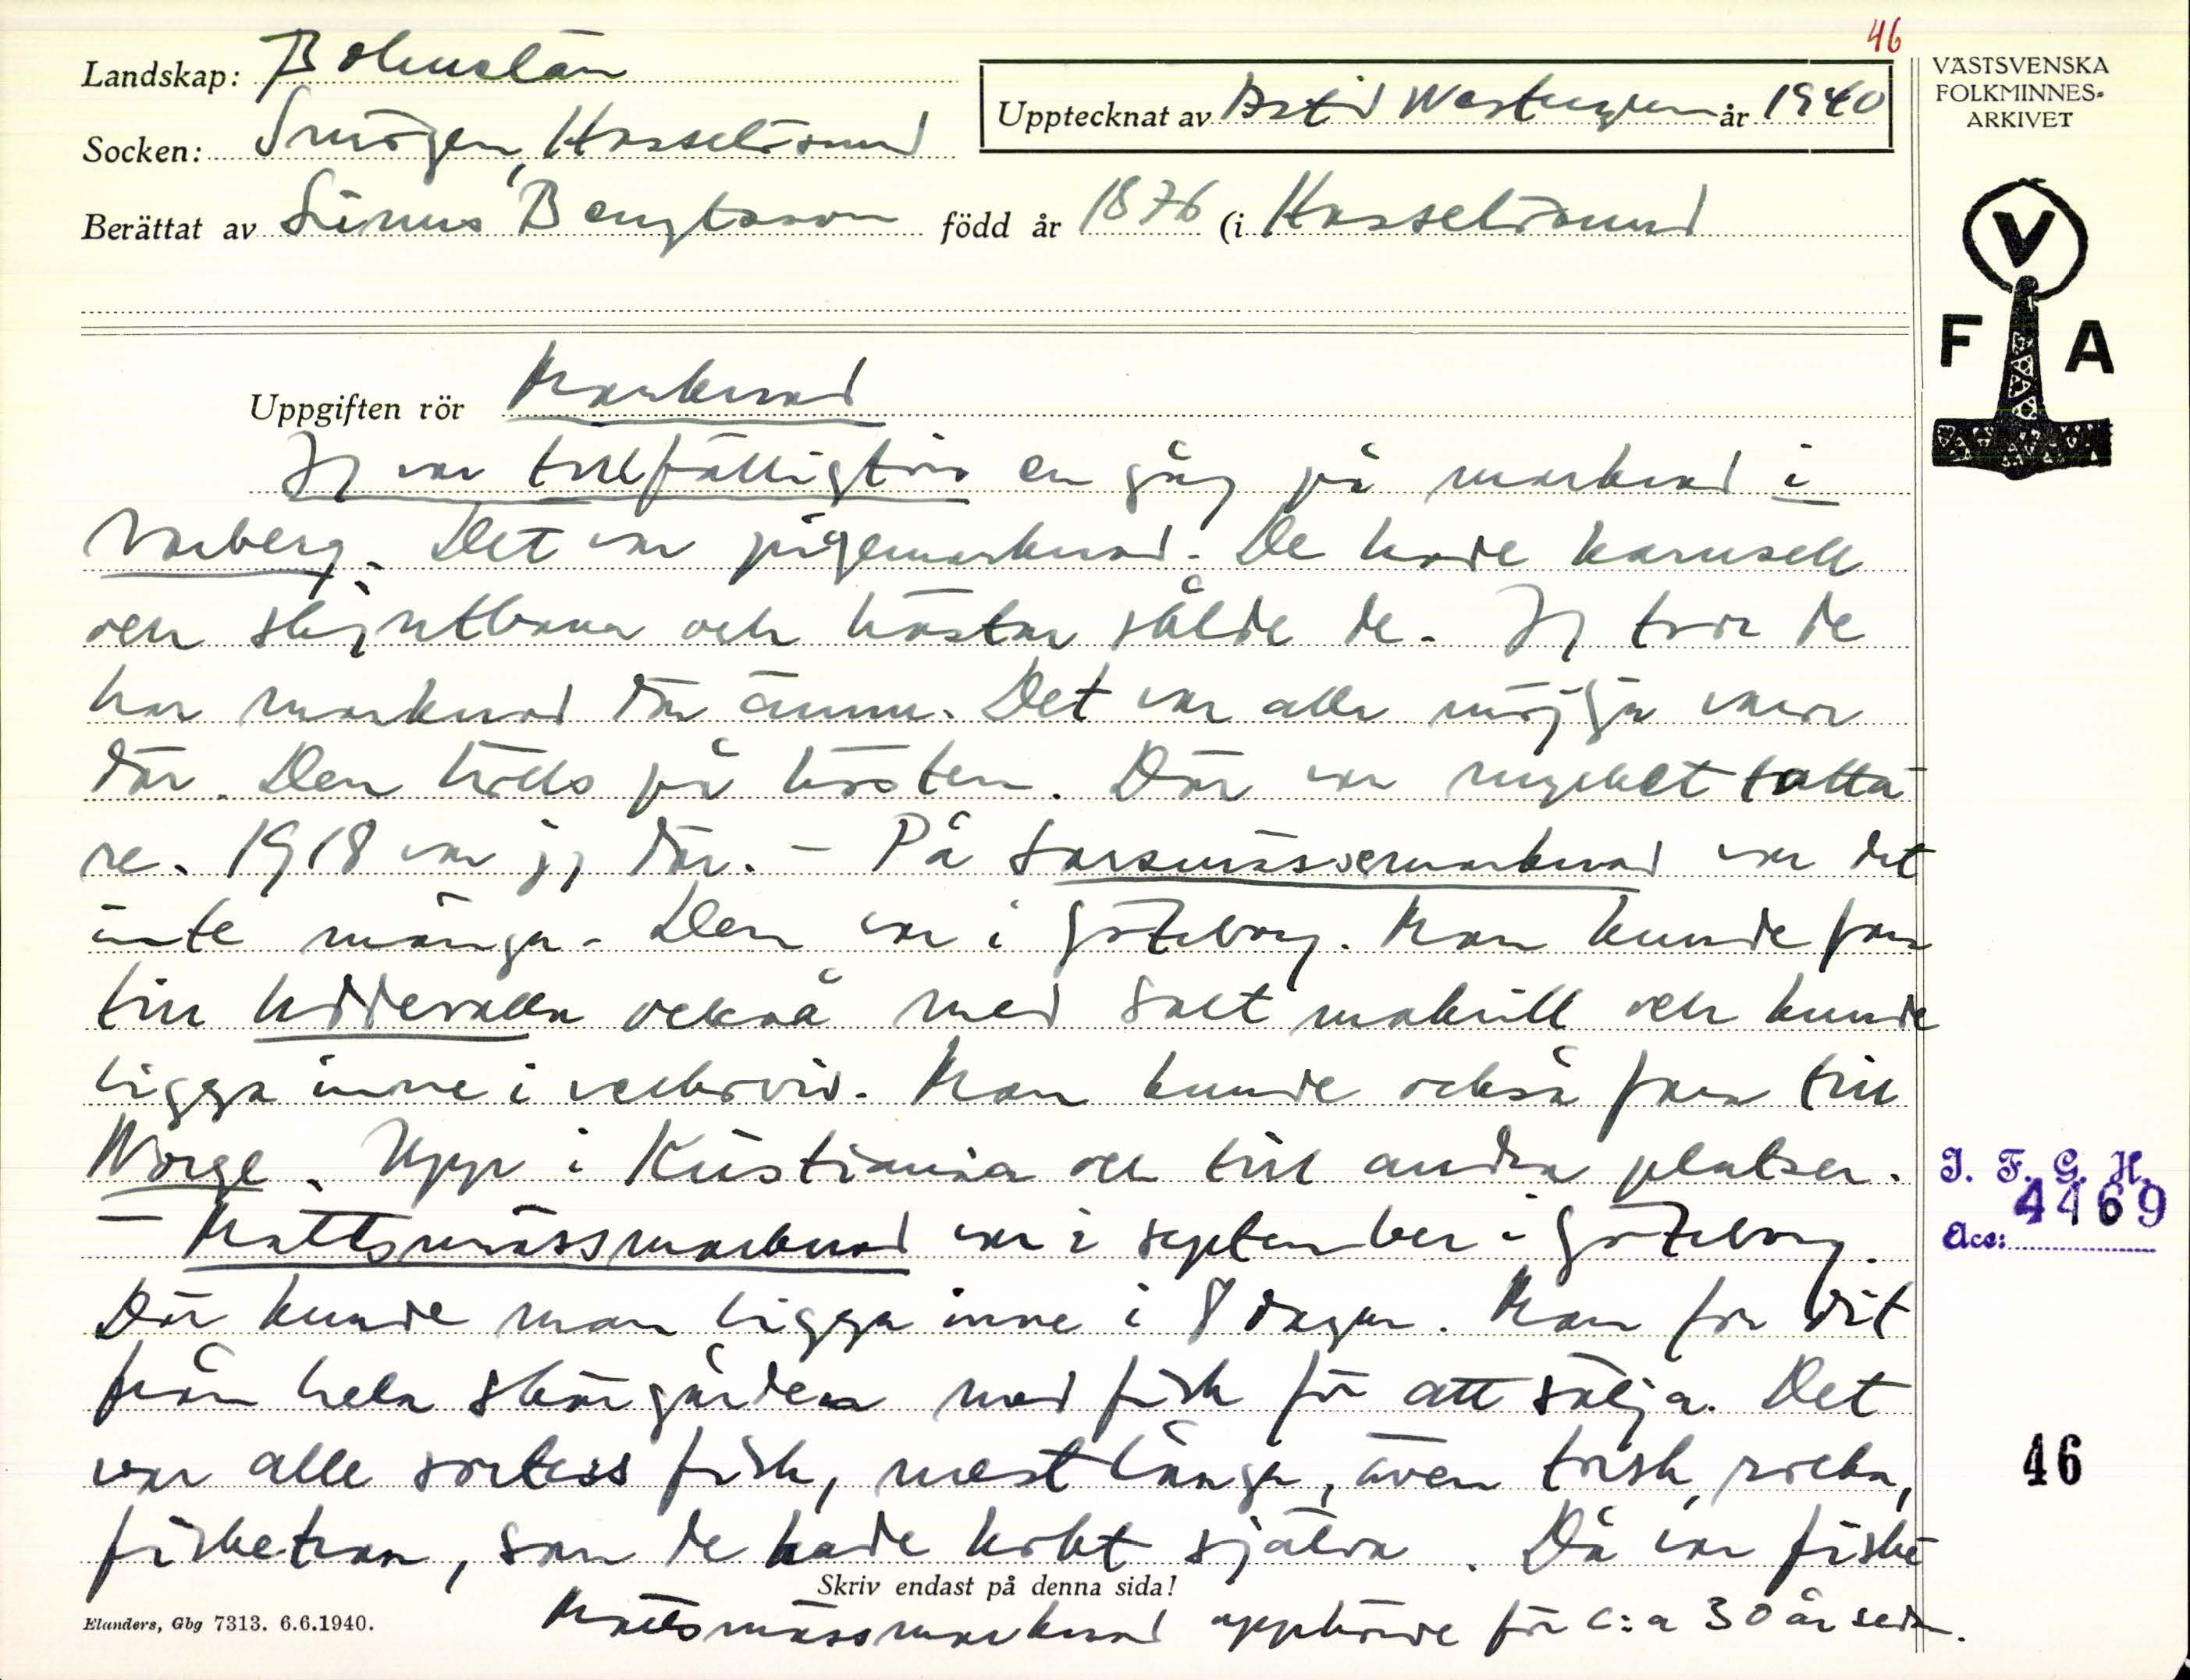 46
Landskap: Bohuslän
Upptecknat av Astrid Westergren år 1940
VÄSTSVENSKA
FOLKMINNES-
ARKIVET
Socken: Smögen, Hasselösund
Berättat av Linus Bengtsson född år 1876 (i Hasselösund
V
F A
Uppgiften rör Marknad
Jag var tillfälligtvis en gång på marknad i
Varberg. Det var pigemarknad. De hade karusell
och skjutbana och hästar sålde de. Jag tror de
har marknad där ännu. Det var alla möjliga varor
där. Den hölls på hösten. Där var mycket tatta
re. 1918 var jag där. - På Larsmässemarknad var det
inte många. Den var i Göteborg. Man kunde fara
till Uddevalla också med salt makrill och kunde
ligga inne i veckovis. Man kunde också fara till
Norge. Upp i Kristiania och till andra platser.
- Mattsmässmarknad var i september i Göteborg.
Där kunde man ligga inne i 8 dagar. Man for dit
från hela skärgården med fisk för att sälja. Det
var alle sortess fisk, mest långa, även torsk, rocka,
fisketran, som de hade kokt själva. Då var fiske
Mattsmässmarknad upphörde för c:a 30 år sedan.
Skriv endast på denna sida!
Elanders, Gbg 7313. 6.6.1940.
I. F. G. H.
Acc: 4469
46